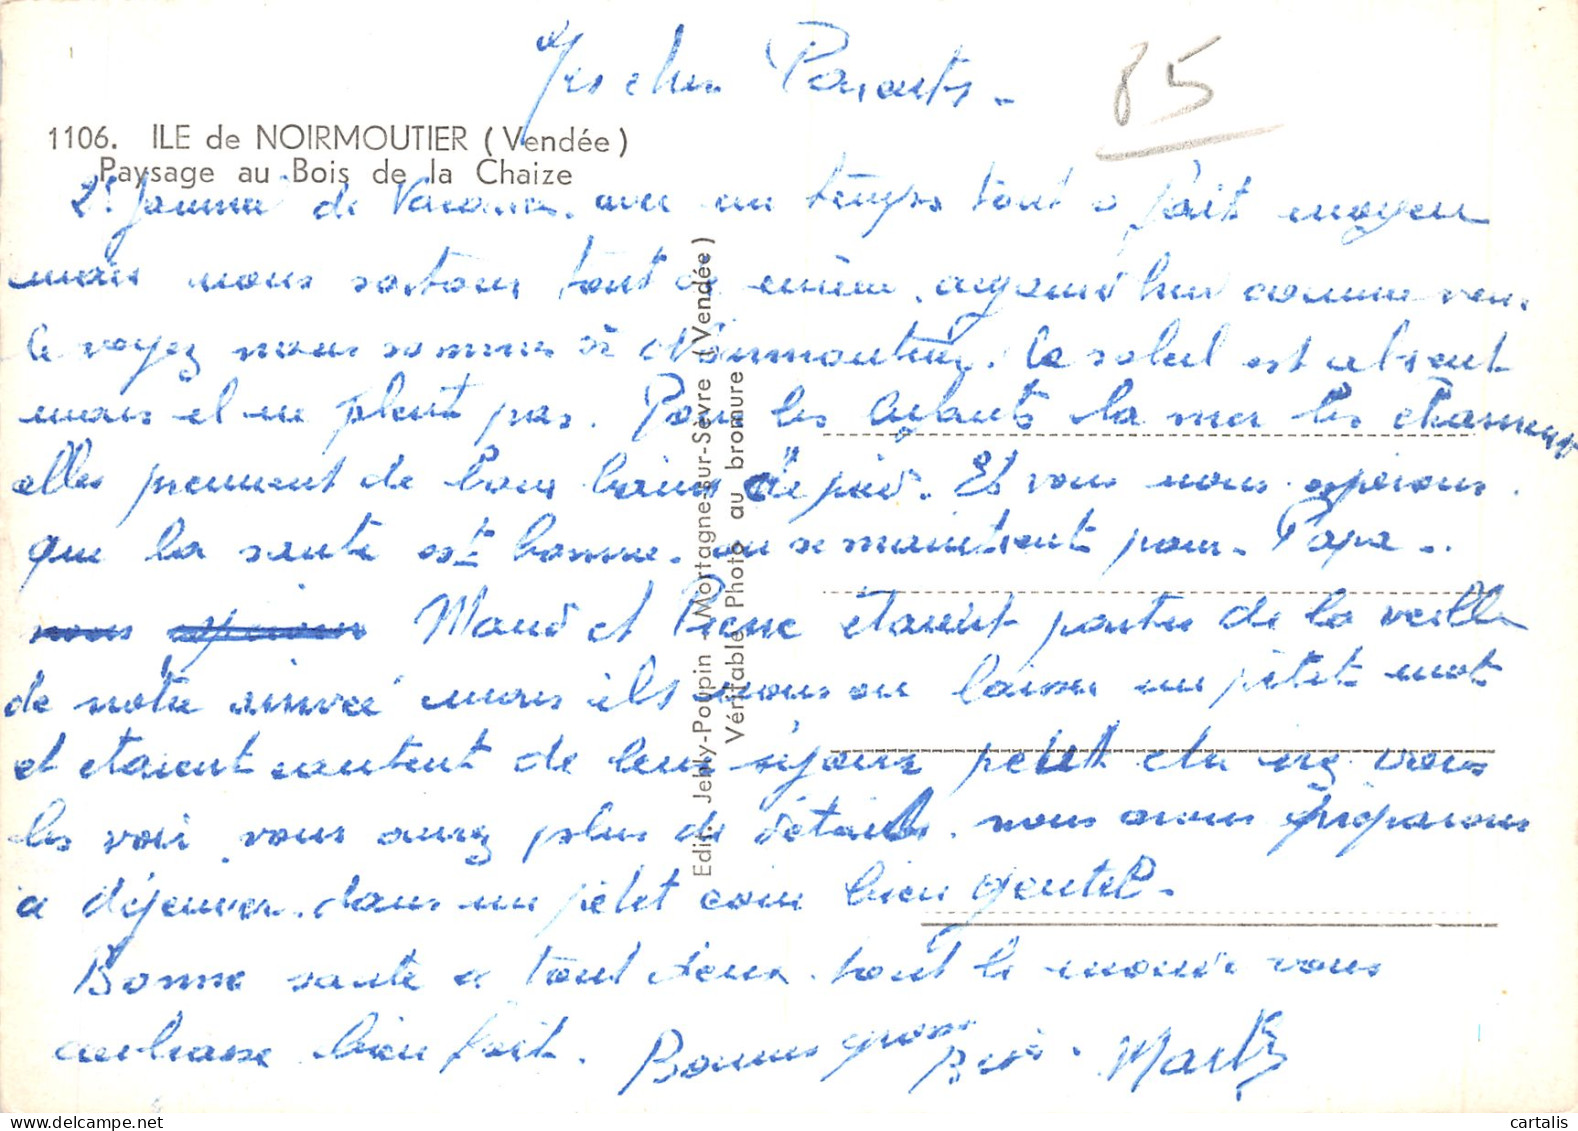 Mes chers Parents.
85
1106. ILE de NOIRMOUTIER (Vendée)
Paysage au Bois de la Chaize
2e journée de Vacances. avec un temps tout a fait moyen
mais nous sortons tout de même. aujourd'hui comme vous
le voyez nous sommes à Noirmoutier. le soleil est absent
mais il ne pleut pas. Pour les enfants la mer les
elles prennent de bons bains de pied. Et vous nous espérons
que la santé est bonne. ou se maintient pour Papa..
nous espérons Maud et Pierre étaient partis de la veille
de notre arrivée mais ils nous on laisser un petit mot
et étaient content de leur séjour petit etu irez vous
les voir. vous aurez plus de détails. nous avons préparons
a déjeuner. dans un petit coin bien gentil.
Bonne santé a tout deux. tout le monde vous
embrasse bien fort. Bonnes grosses
Bises. Martz
Edit. Jehly-Poupin Mortagne-sur-Sèvre (Vendée)
Véritable Photo au bromure
www.cartalis.com
cartalis